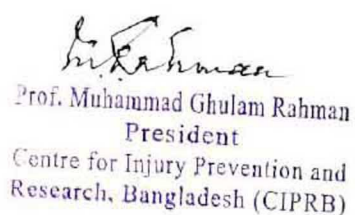 M. Rahman
Prof. Muhammad Ghulam Rahman
President
Centre for Injury Prevention and
Research, Bangladesh (CIPRB)